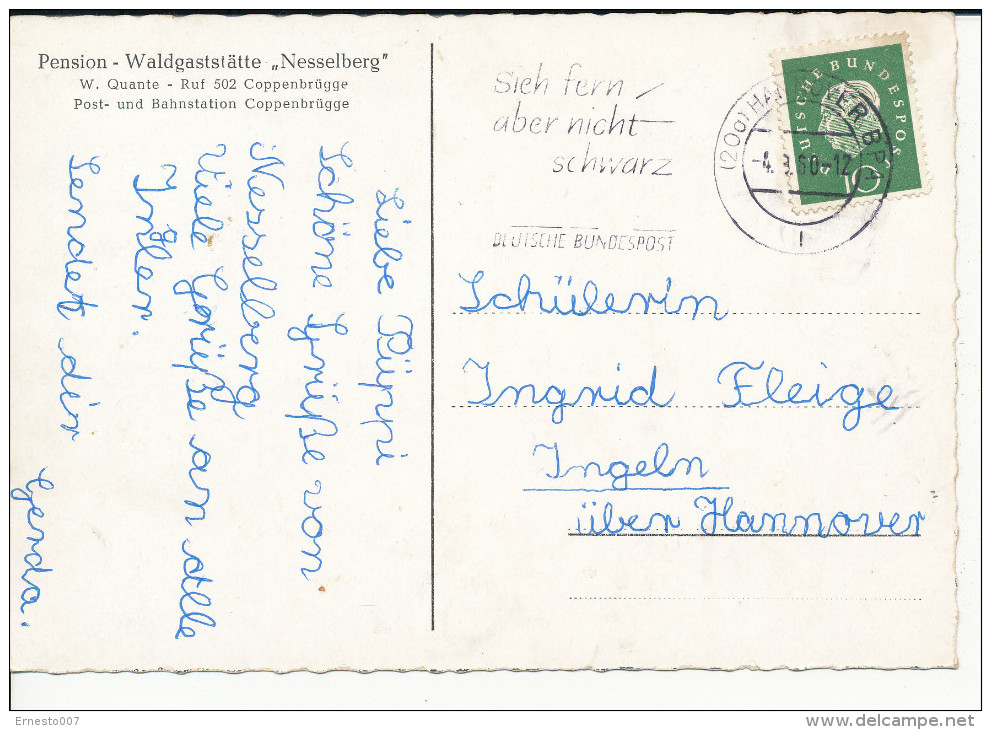 Pension - Waldgaststätte „Nesselberg"
W. Quante - Ruf 502 Coppenbrügge
Post- und Bahnstation Coppenbrügge
Liebe Püppi
Schöne Grüße von
Nesselberg
Viele Grüße an alle
Sendet dir
Gerda.
Sieh fern
aber nicht
schwarz
DEUTSCHE BUNDESPOST
DEUTSCHE BUNDESPOST
10
(20a) HANNOVER BPA
-4.9.60-12
Schülerin
Ingrid Fleige
Ingeln
über Hannover
Ernesto007
delcampe.net